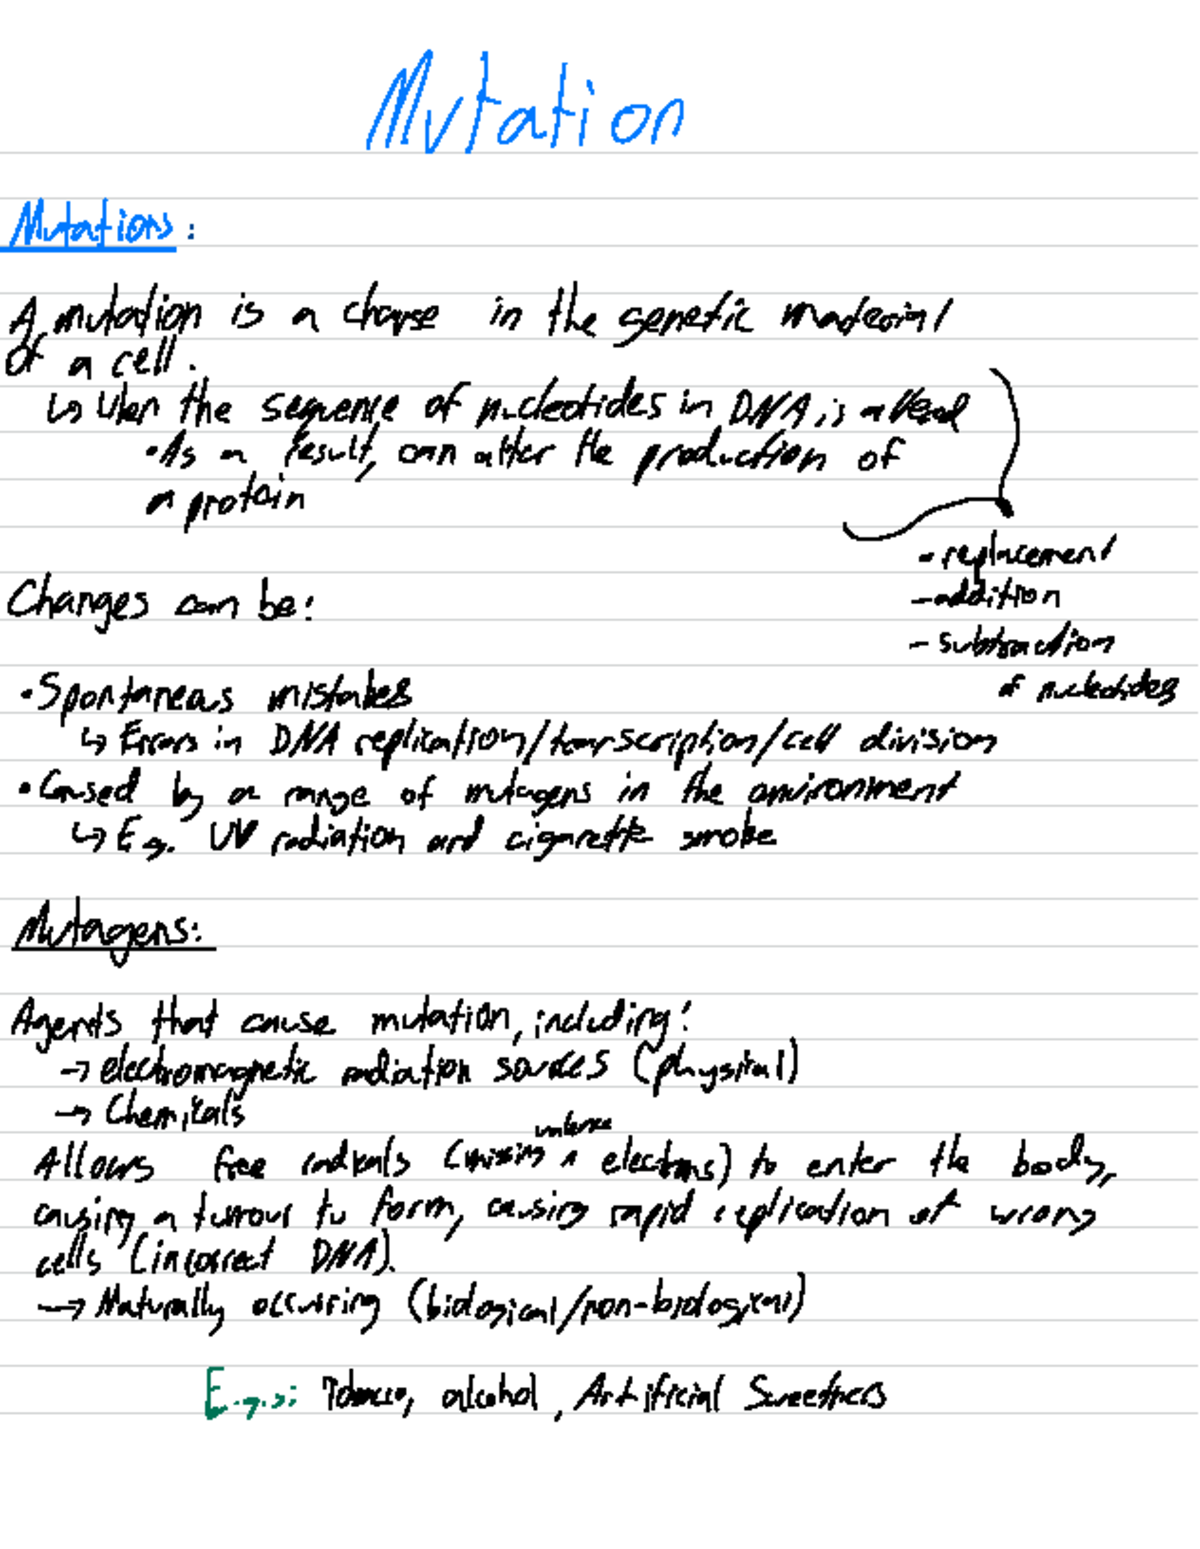 Mutation
Mutations:
A mutation is a change in the genetic material
of a cell.
↳ When the sequence of nucleotides in DNA is altered
• As a result, can alter the production of
a protein
- replacement
- addition
- subtraction
of nucleotides
Changes can be:
• Spontaneous mistakes
↳ Errors in DNA replication/transcription/cell division
• Caused by a range of mutagens in the environment
↳ E.g. UV radiation and cigarette smoke
Mutagens:
Agents that cause mutation, including:
→ electromagnetic radiation sources (physical)
→ Chemicals
Allows free radicals (missing valence electrons) to enter the body,
causing a tumour to form, causing rapid replication of wrong
cells (incorrect DNA).
→ Naturally occurring (biological/non-biological)
E.g.s: Tobacco, alcohol, Artificial Sweetners